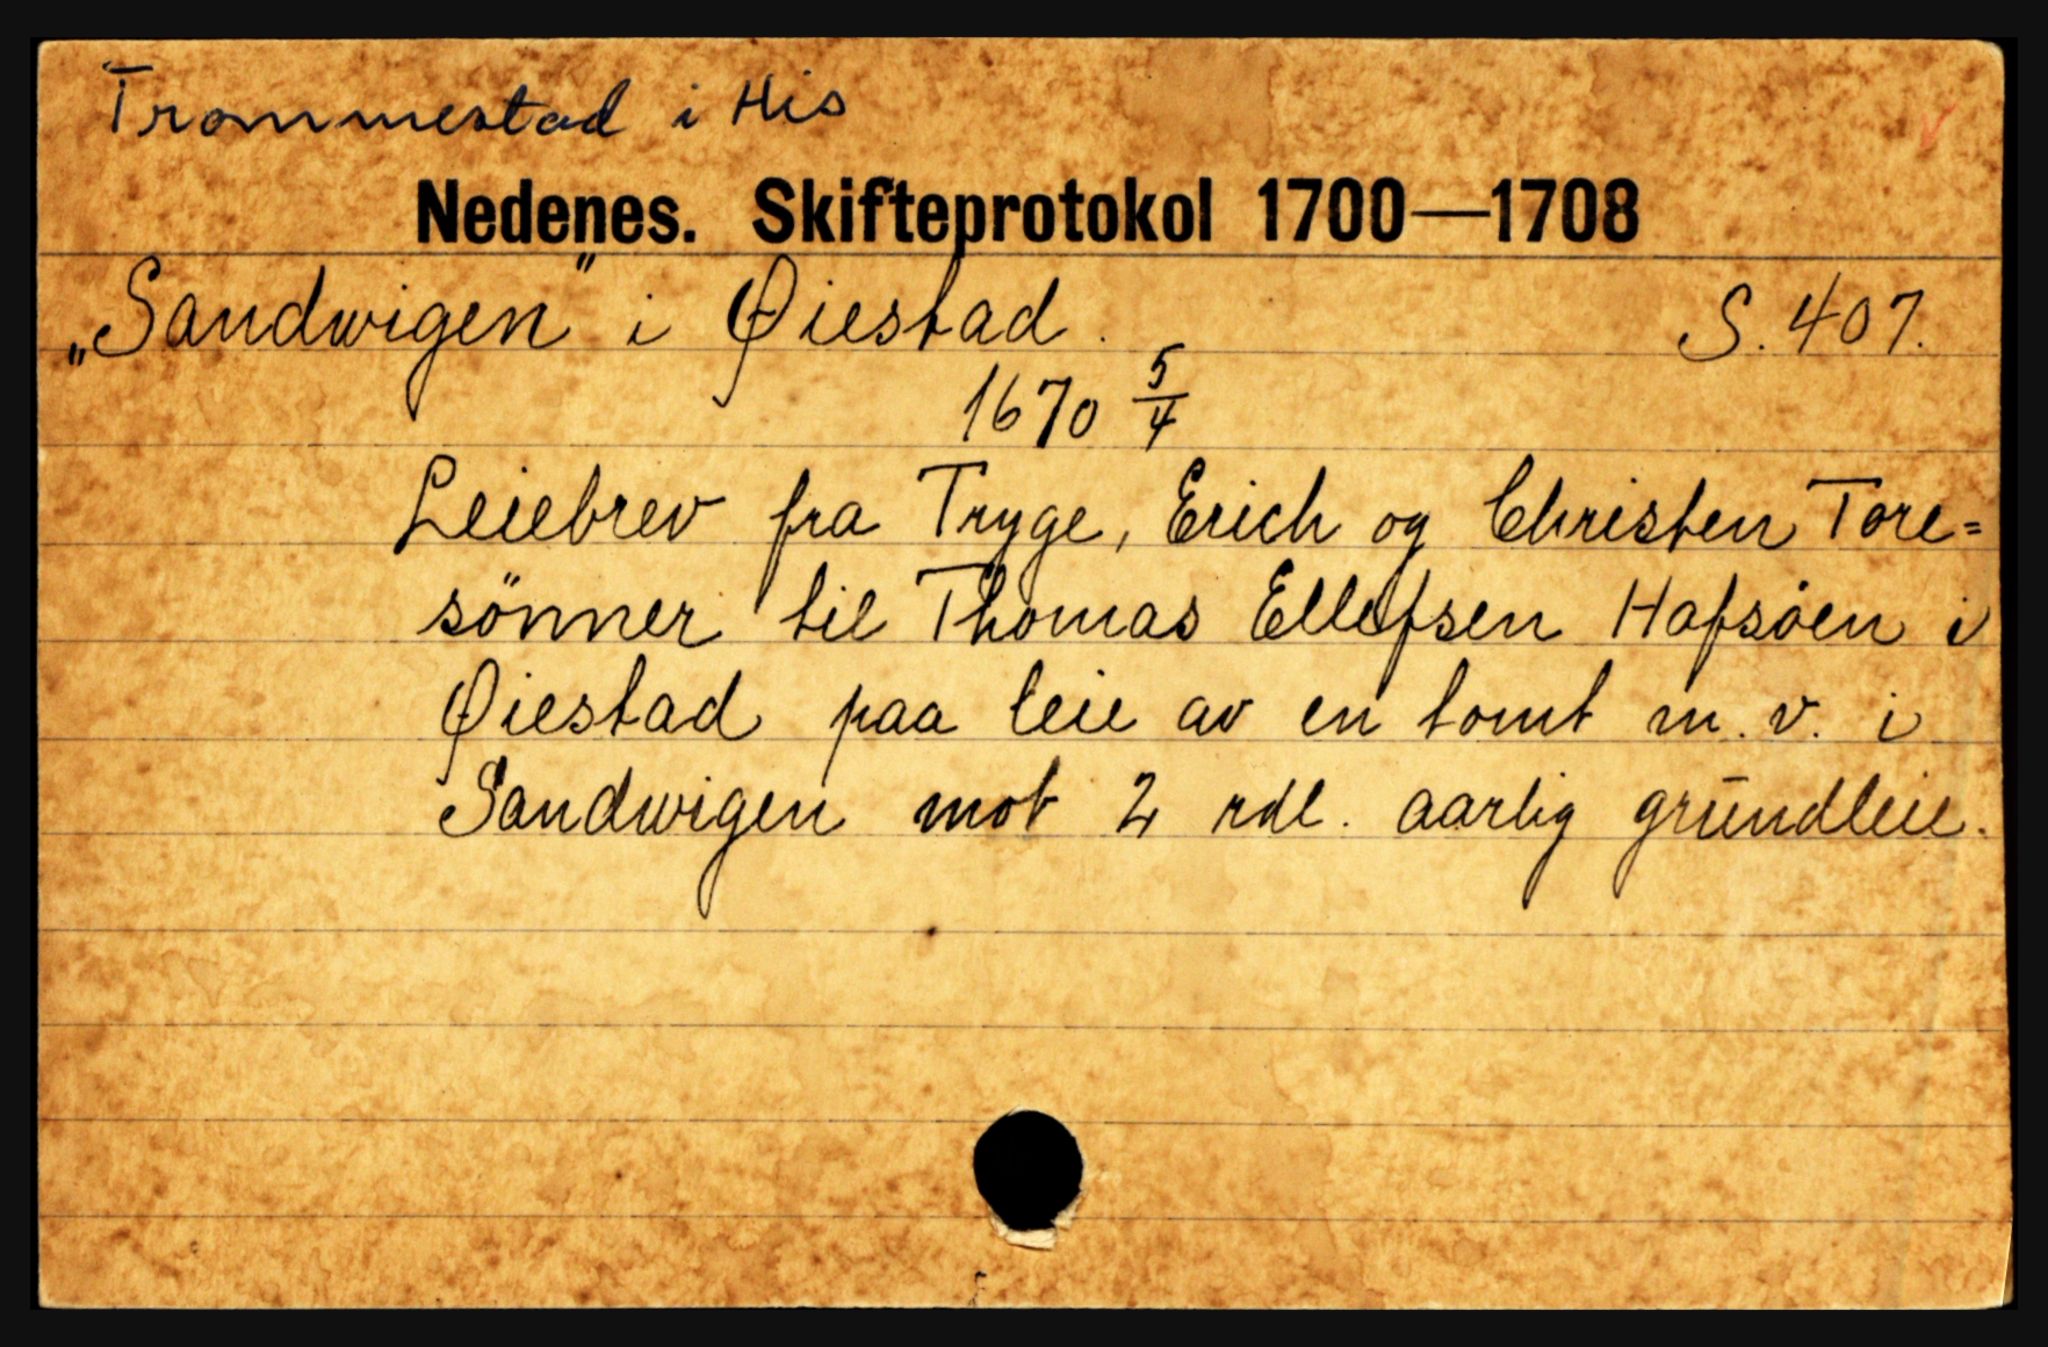 Trommestad i His
Nedenes. Skifteprotokol 1700—1708
„Sandwigen" i Øiestad. S. 407.
1670 5/4
Leiebrev fra Tryge, Erich og Christen Tore=
sönner til Thomas Ellefsen Hafsöen i
Øiestad paa leie av en tomt m. v. i
Sandwigen mot 2 rdl. aarlig grūndleie.